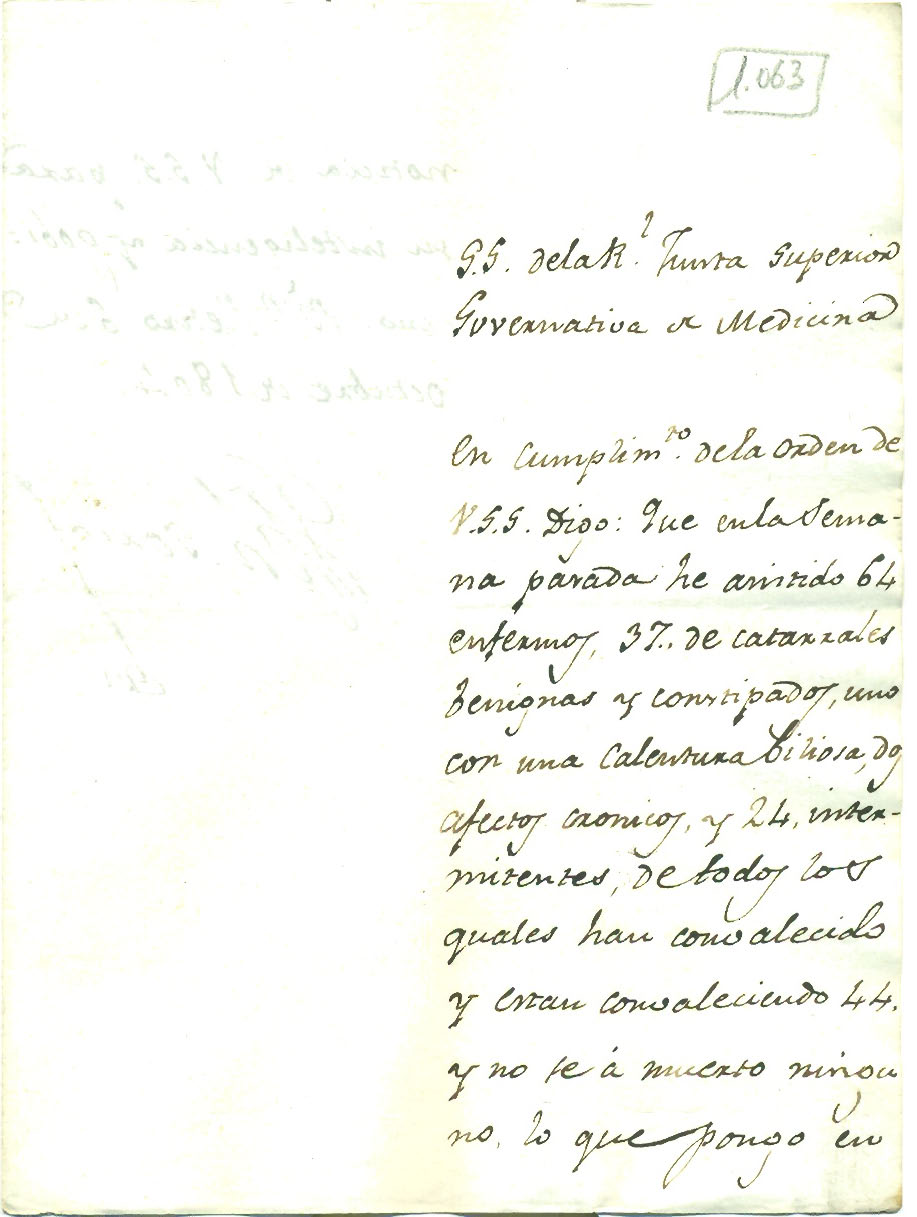 1.063
S.S. dela R.l Junta Superior
Governativa de Medicina
En cumplim.to de la orden de
V.S.S. Digo: que en la Sema-
na pasada he asistido 64
enfermos, 37., de catarrales
benignas y constipados, uno
con una calentura biliosa, dos
afectos cronicos, y 24, inter-
mitentes, de todos los
quales han convalecido
y estan convaleciendo 44.
y no se á muerto ningu
no, lo que pongo en